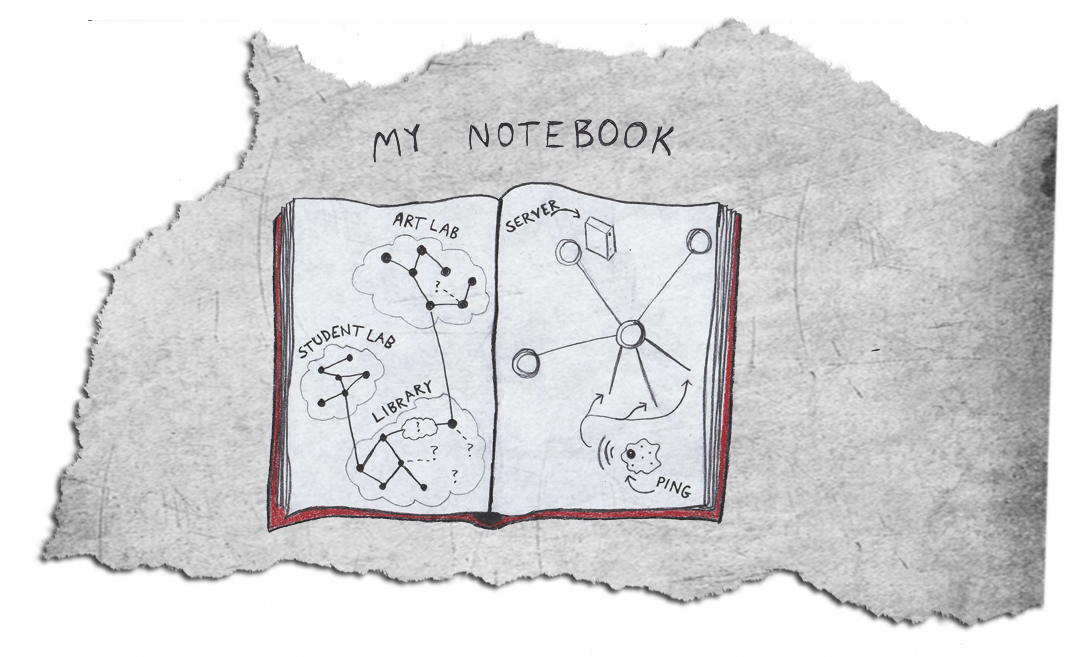 MY NOTEBOOK
ART LAB
?
STUDENT LAB
LIBRARY
?
?
?
?
SERVER
PING